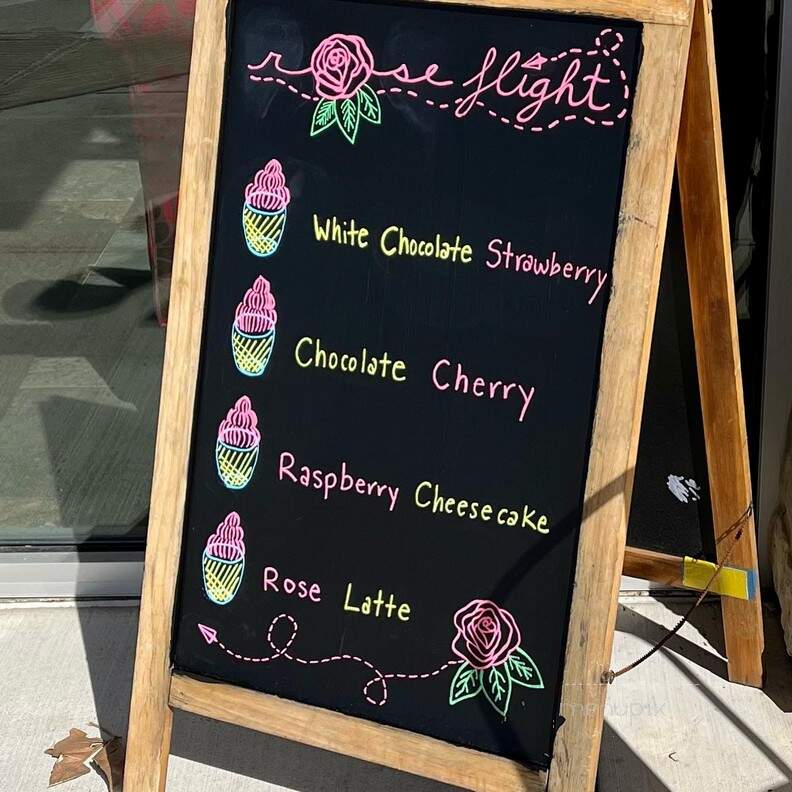 rose flight
White Chocolate Strawberry
Chocolate Cherry
Raspberry Cheesecake
Rose Latte